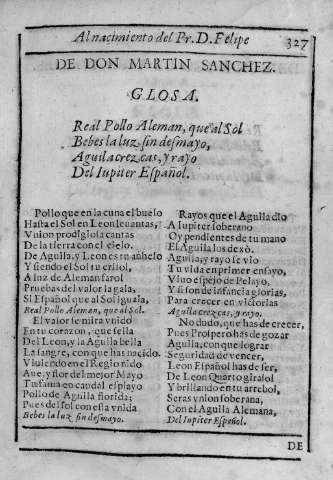 Al nacimiento del Pr. D. Felipe
327
DE DON MARTIN SANCHEZ.
GLOSA.
Real Pollo Aleman, que al Sol
Bebes la luz sin desmayo,
Aguila crezcas, y rayo
Del Iupiter Español.
Pollo que en la cuna el buelo
Hasta el Sol en Leon leuantas,
Vnion prodigiosa cantas
De la tierra con el cielo.
De Aguila, y Leon es tu anhelo
Y siendo el Sol tu crisol,
A luz de Aleman farol
Prueбas del valor la gala,
Si Español que al Sol iguala,
Real Pollo Aleman, que al Sol.
El valor se mira vnido
En tu coraçon, que sella
Del Leon, y la Aguila bella
La sangre, con que has nacido.
Viuiendo en el Regio nido
Aue, y flor del mejor Mayo
Tu fama en caudal esplayo
Pollo de Aguila florida;
Pues del sol con essa vnida
Bebes la luz sin desmayo.
Rayos que el Aguila dio
A Iupiter soberano
Oy pendientes de tu mano
El Aguila los dexò.
Aguila, y rayo se vio
Tu vida en primer ensayo,
Vino espejo de Pelayo,
Y si son de infancia glorias,
Para crecer en victorias
Aguila crezcas, y rayo.
No dudo, que has de crecer,
Pues Prospero has de gozar
Aguila, con que lograr
Seguridad de vencer,
Leon Español has de ser,
De Leon Quarto girasol
Y brillando en tu arrebol,
Seras vnion soberana,
Con el Aguila Alemana,
Del Iupiter Español.
DE